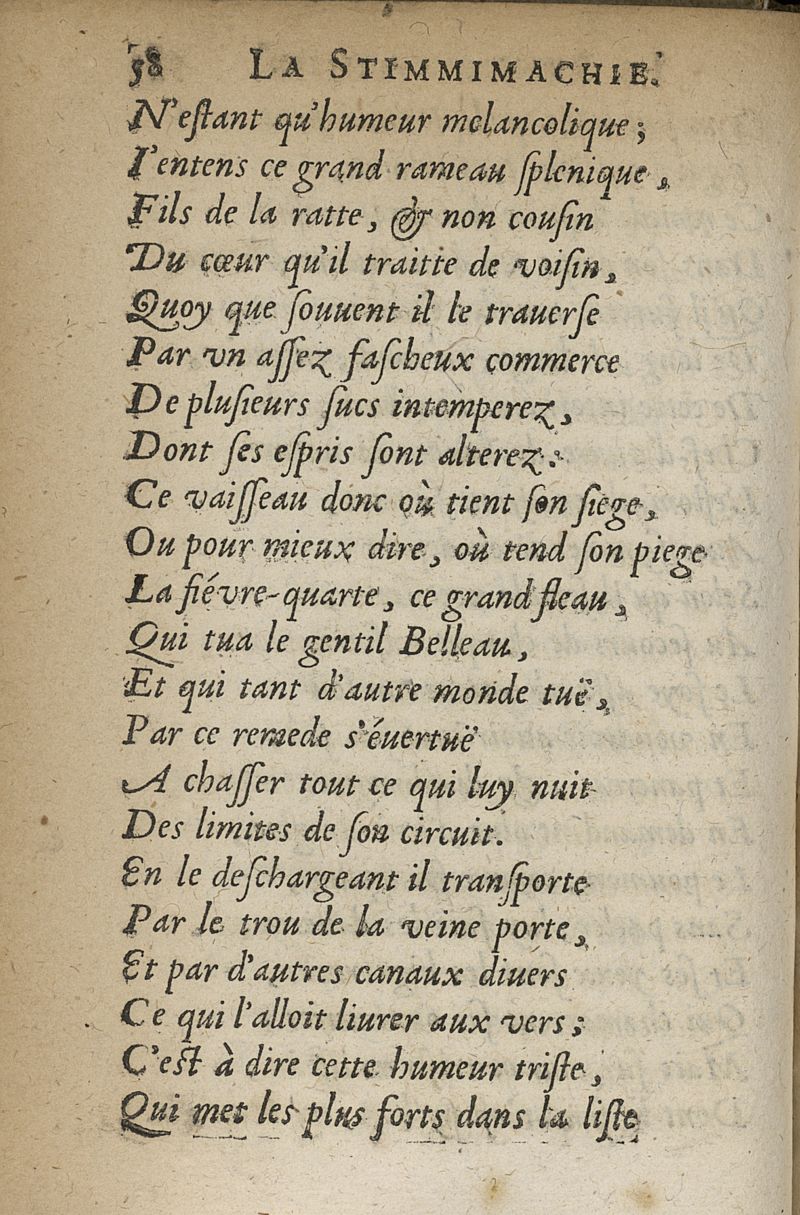 58 LA STIMMIMACHIE.
N'eſtant qu'humeur melancolique;
I'entens ce grand rameau ſplenique,
Fils de la ratte, & non couſin
Du cœur qu'il traitte de voiſin,
Quoy que ſouuent il le trauerſe
Par vn aſſez faſcheux commerce
De pluſieurs ſucs intemperez,
Dont ſes eſpris ſont alterez:
Ce vaiſſeau donc où tient ſon ſiege,
Ou pour mieux dire, où tend ſon piege
La fiévre-quarte, ce grand fleau,
Qui tua le gentil Belleau,
Et qui tant d'autre monde tuë,
Par ce remede s'éuertuë
A chaſſer tout ce qui luy nuit
Des limites de ſon circuit.
En le deſchargeant il tranſporte
Par le trou de la veine porte,
Et par d'autres canaux diuers
Ce qui l'alloit liurer aux vers;
C'eſt à dire cette humeur triſte,
Qui met les plus forts dans la liſte